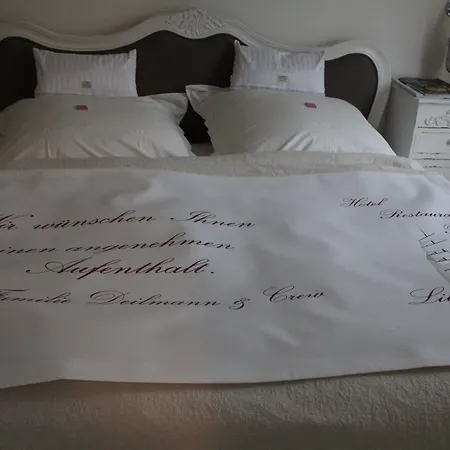 Wir wünschen Ihnen
einen angenehmen
Aufenthalt.
Familie Deilmann & Crew
Hotel